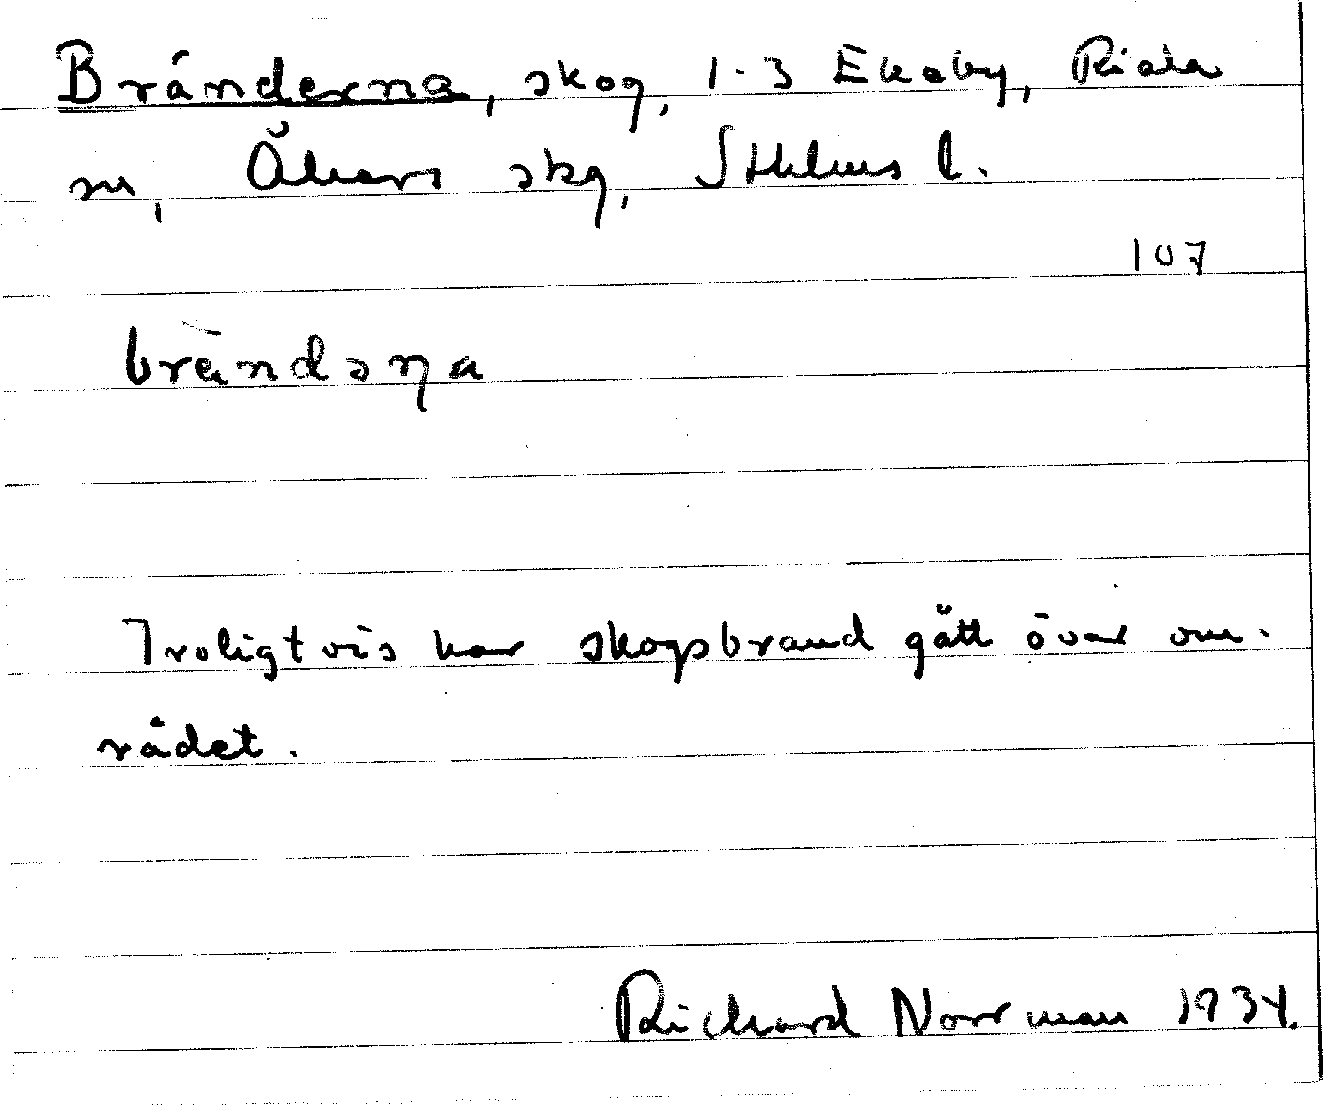 Bränderna, skog, 1-3 Ekeby, Riala
sn, Åkers skg, Sthlms l.
107
brändəṇa
Troligtvis har skogsbrand gått över om-
rådet.
Richard Norrman 1934.